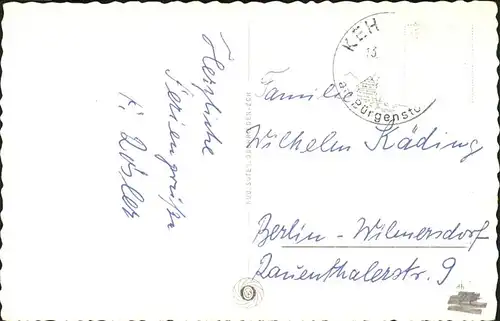 Herzliche
Feriengrüße
F. Rösler
KEH
a.d. Bürgenst
Familie
Wilhelm Käding
Berlin - Wilmersdorf
Rauenthalerstr. 9